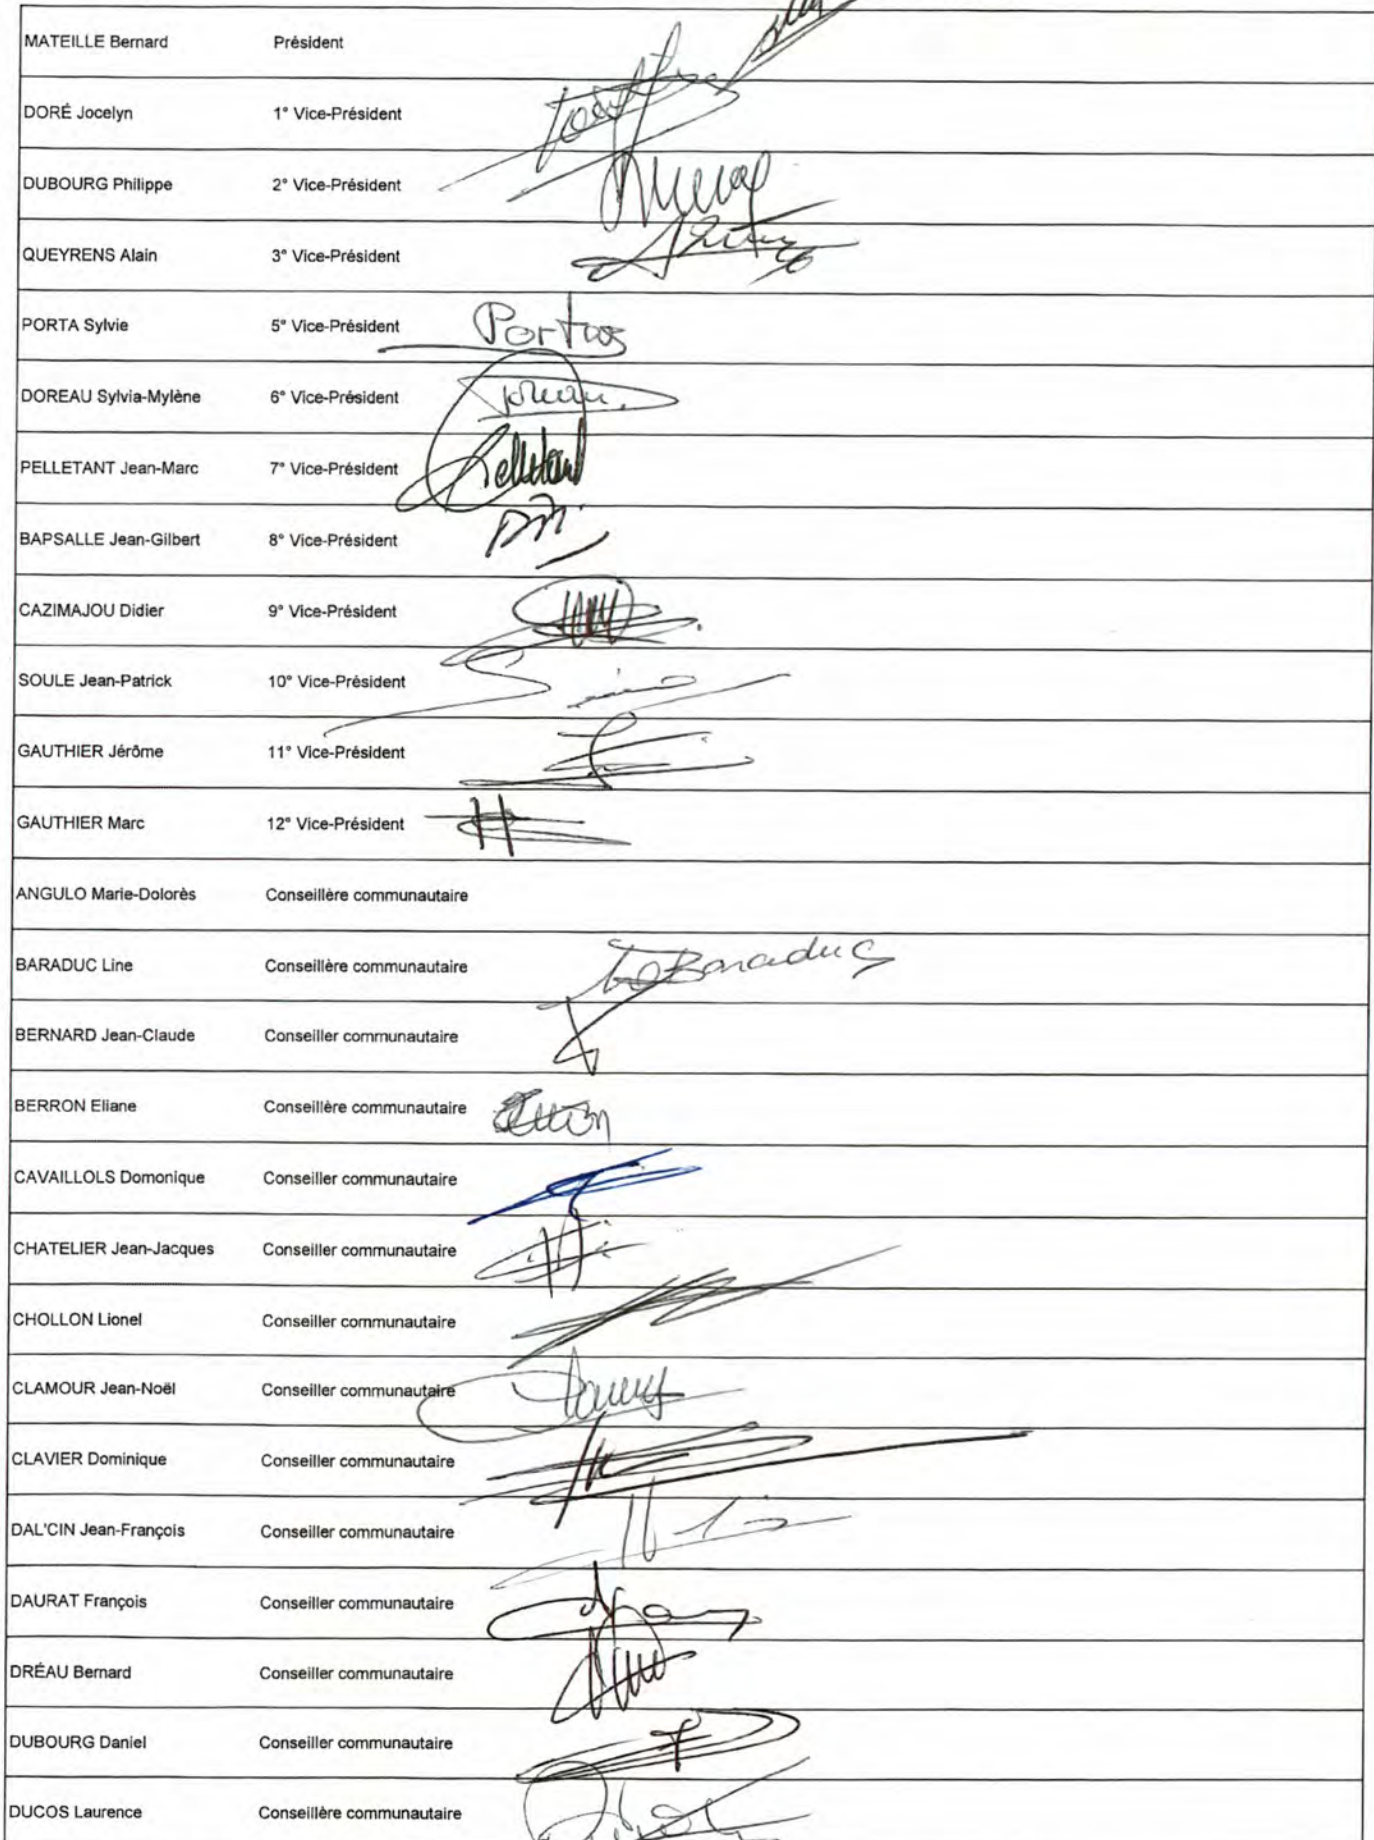 MATEILLE Bernard Président
DORÉ Jocelyn 1° Vice-Président
DUBOURG Philippe 2° Vice-Président
QUEYRENS Alain 3° Vice-Président
PORTA Sylvie 5° Vice-Président
DOREAU Sylvia-Mylène 6° Vice-Président
PELLETANT Jean-Marc 7° Vice-Président
BAPSALLE Jean-Gilbert 8° Vice-Président
CAZIMAJOU Didier 9° Vice-Président
SOULE Jean-Patrick 10° Vice-Président
GAUTHIER Jérôme 11° Vice-Président
GAUTHIER Marc 12° Vice-Président
ANGULO Marie-Dolorès Conseillère communautaire
BARADUC Line Conseillère communautaire Baraduc
BERNARD Jean-Claude Conseiller communautaire
BERRON Eliane Conseillère communautaire
CAVAILLOLS Domonique Conseiller communautaire
CHATELIER Jean-Jacques Conseiller communautaire
CHOLLON Lionel Conseiller communautaire
CLAMOUR Jean-Noël Conseiller communautaire
CLAVIER Dominique Conseiller communautaire
DAL'CIN Jean-François Conseiller communautaire
DAURAT François Conseiller communautaire
DRÉAU Bernard Conseiller communautaire
DUBOURG Daniel Conseiller communautaire
DUCOS Laurence Conseillère communautaire